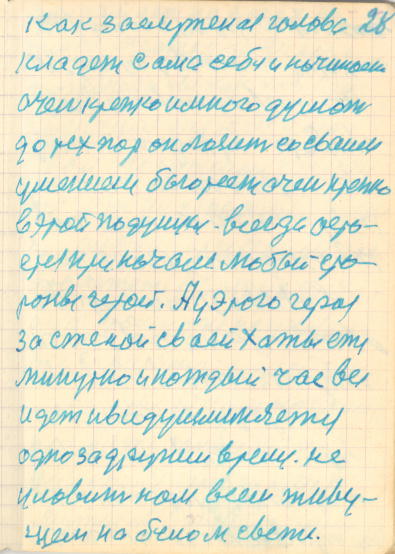 как заслуженая голова 28
кладет сама себя и начинает
очен крепко и много думат
до тех пор он лежит со своим
умением бываеет очен крепко
в этой подушки. всегда остр-
ется при начале любый сто-
роны герой. А у этого героя
за стеной своей хаты еже
минутно и каждый час все
идет и
одно за другим время. не
уловит нам всем живу-
щем на белом свети.